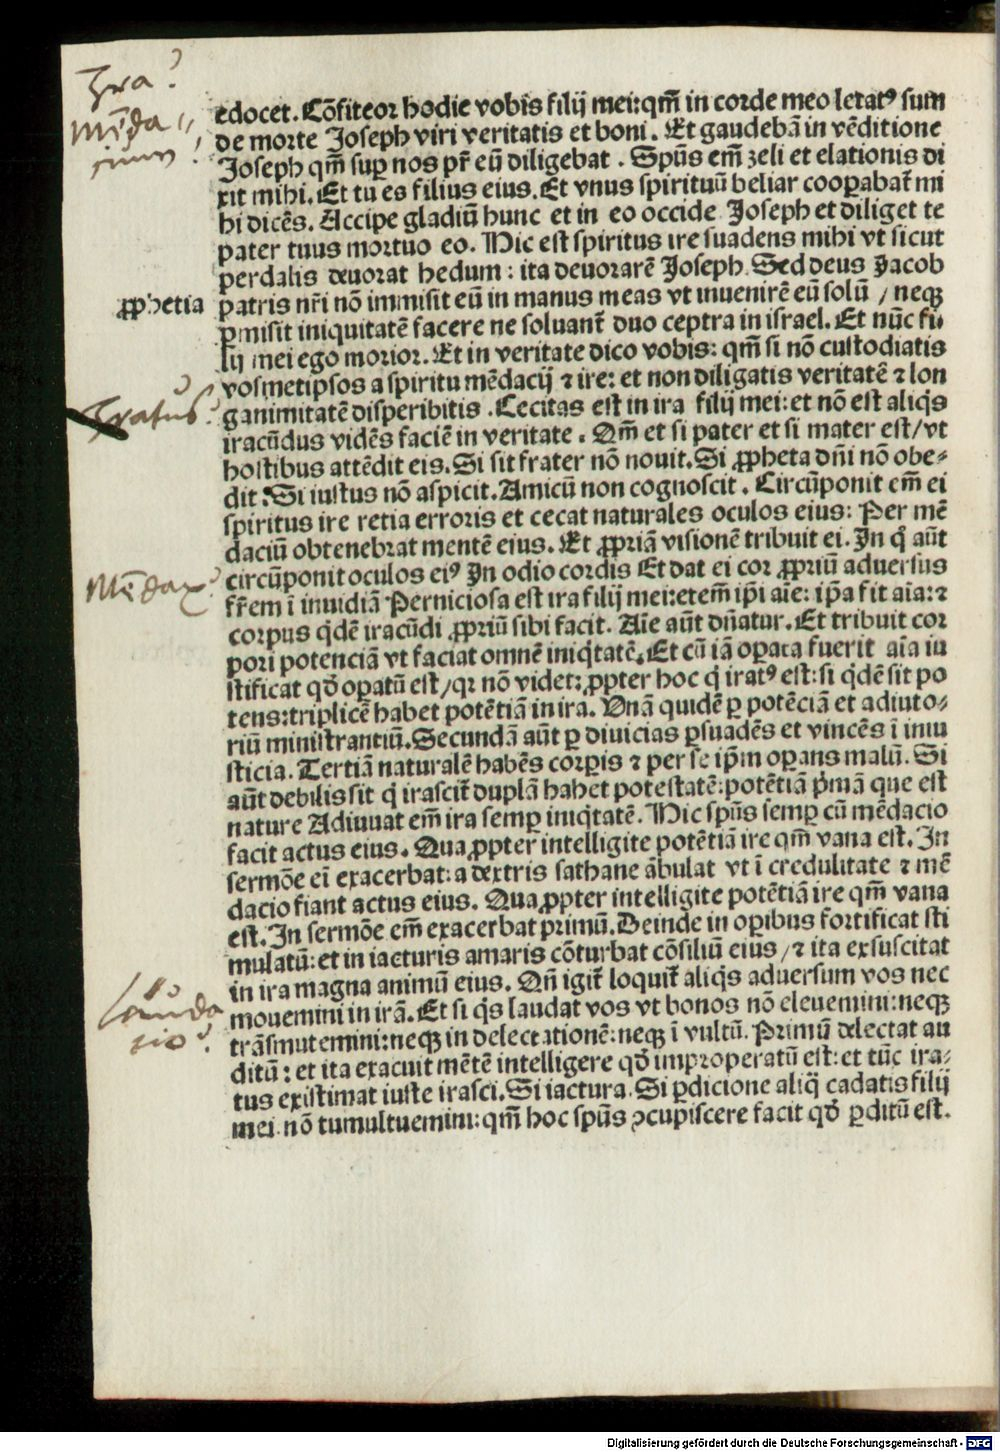 Ira?
Mēda
cium?
edocet. Cōfiteor hodie vobis filij mei:qm̄ in corde meo letatꝰ sum
de morte Joseph viri veritatis et boni. Et gaudebā in vēditione
Joseph qm̄ suꝑ nos pr̄ eū diligebat. Spūs em̄ zeli et elationis di
xit mihi. Et tu es filius eius. Et vnus spirituū beliar cooꝑabat̄ mi
hi dicēs. Accipe gladiū hunc et in eo occide Joseph et diliget te
pater tuus mortuo eo. Hic est spiritus ire suadens mihi vt sicut
perdalis deuorat hedum: ita deuorarē Joseph. Sed deus Jacob
ꝓphetia
patris nr̄i nō immisit eū in manus meas vt inuenirē eū solū / neqꝫ
ꝑmisit iniquitatē facere ne soluant̄ duo ceptra in israel. Et nūc fi-
lij mei ego morior. Et in veritate dico vobis: qm̄ si nō custodiatis
vosmetipsos a spiritu mēdacij ⁊ ire: et non diligatis veritatē ⁊ lon
Iratus?
ganimitatē disperibitis. Cecitas est in ira filij mei: et nō est aliq̇s
iracūdus vidēs faciē in veritate. Qm̄ et si pater et si mater est/vt
hostibus attēdit eis. Si sit frater nō nouit. Si ꝓpheta dn̄i nō obe-
dit. Si iustus nō aspicit. Amicū non cognoscit. Circūponit em̄ ei
spiritus ire retia erroris et cecat naturales oculos eius: Per mē
daciū obtenebrat mentē eius. Et ꝓpriā visionē tribuit ei. In q̇ aūt
Mēdax?
circūponit oculos eiꝰ In odio cordis Et dat ei cor ꝓpriū aduersus
fr̄em ī inuidiā Perniciosa est ira filij mei:etem̄ ip̄i aīe: ip̄a fit aīa:⁊
corpus q̇dē iracūdi ꝓpriū sibi facit. Aīe aūt dn̄atur. Et tribuit cor
pori potenciā vt faciat omnē iniq̇tatē. Et cū iā oꝑata fuerit aīa iu
stificat qd̄ oꝑatū est/qꝛ nō videt: ꝓpter hoc q̇ iratꝰ est: si q̇dē sit po
tens:triplicē habet potētiā in ira. Vnā quidē ꝑ potēciā et adiuto-
riū ministrantiū. Secundā aūt ꝑ diuicias ꝑsuadēs et vincēs ī iniu
sticia. Tertiā naturalē habēs corꝑis ⁊ per se ip̄m oꝑans malū. Si
aūt debilis sit q̇ irascit̄ duplā habet potestatē:potētiā p̄mā que est
nature Adiuuat em̄ ira semꝑ iniq̇tatē. Hic spūs semꝑ cū mēdacio
facit actus eius. Quaꝓpter intelligite potētiā ire qm̄ vana est. In
sermōe eī exacerbat: a dextris sathane ābulat vt ī credulitate ⁊ mē
dacio fiant actus eius. Quaꝓpter intelligite potētiā ire qm̄ vana
est. In sermōe em̄ exacerbat primū. Deinde in oꝑibus fortificat sti
mulatū: et in iacturis amaris cōturbat cōsiliū eius /⁊ ita exsuscitat
Lauda
cio?
in ira magna animū eius. Qn̄ igit̄ loquit̄ aliq̇s aduersum vos nec
mouemini in irā. Et si q̇s laudat vos vt bonos nō eleuemini:neqꝫ
trāsmutemini:neqꝫ in delectationē:neqꝫ ī vultū. Primū delectat au
ditū: et ita exacuit mētē intelligere qd̄ improperatū est: et tūc ira-
tus existimat iuste irasci. Si iactura. Si ꝑdicione aliq̄ cadatis filij
mei nō tumultuemini: qm̄ hoc spūs ꝯcupiscere facit qd̄ ꝑditū est.
Digitalisierung gefördert durch die Deutsche Forschungsgemeinschaft - DFG